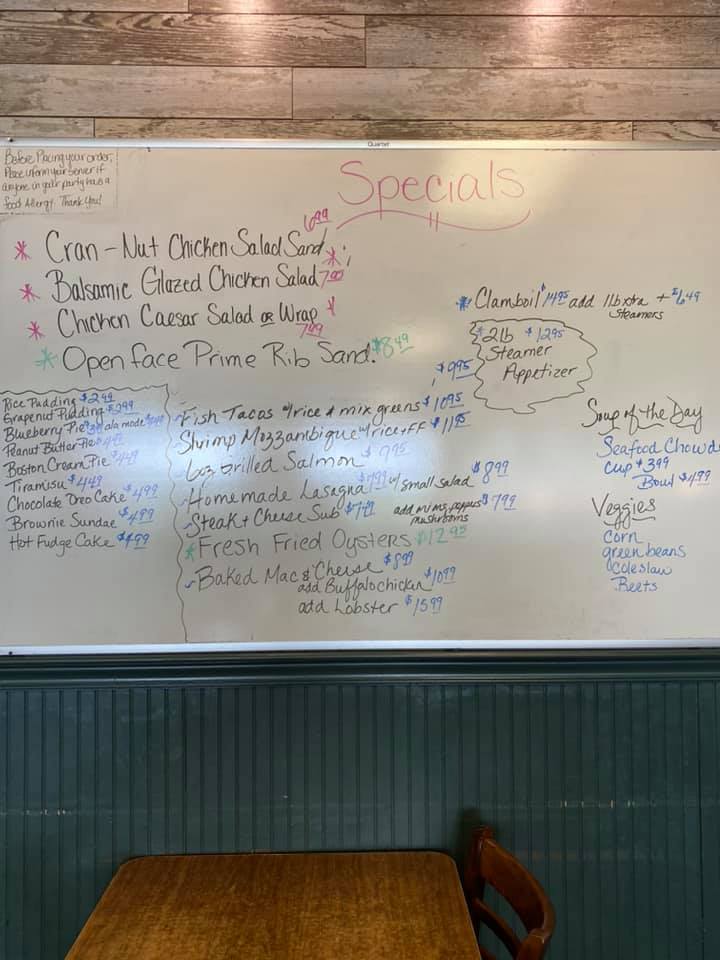 Quartet
Before Placing your order,
Please inform your server if
anyone in your party has a
food Allergy. Thank You!
Specials
* Cran-Nut Chicken Salad Sand. 6.99 *
* Balsamic Glazed Chicken Salad 7.99
* Chicken Caesar Salad or Wrap 7.99 *
* Open face Prime Rib Sand. $8.49
* Clamboil $14.95 add 1lb xtra + $6.49
Steamers
2lb $12.95
Steamer
Appetizer
Rice Pudding $2.49
Grapenut Pudding $2.99
Blueberry Pie ala mode
Peanut Butter Pie $4.49
Boston Cream Pie $4.49
Tiramisu $4.49
Chocolate Oreo Cake $4.99
Brownie Sundae $4.99
Hot Fudge Cake $4.99
$9.95
Fish Tacos w/rice & mix greens $10.95
Shrimp Mozzambique w/rice + FF $11.95
Grilled Salmon $9.95
Homemade Lasagna $7.99 w/ small salad $8.99
Steak + Cheese Sub $7.49 add m's, peppers $7.99
mushrooms
* Fresh Fried Oysters $12.95
Baked Mac & Cheese $8.99
add Buffalo chicken $10.99
add Lobster $15.99
Soup of the Day
Seafood Chowd
cup $3.99
Bowl $4.99
Veggies
corn
green beans
coleslaw
Beets